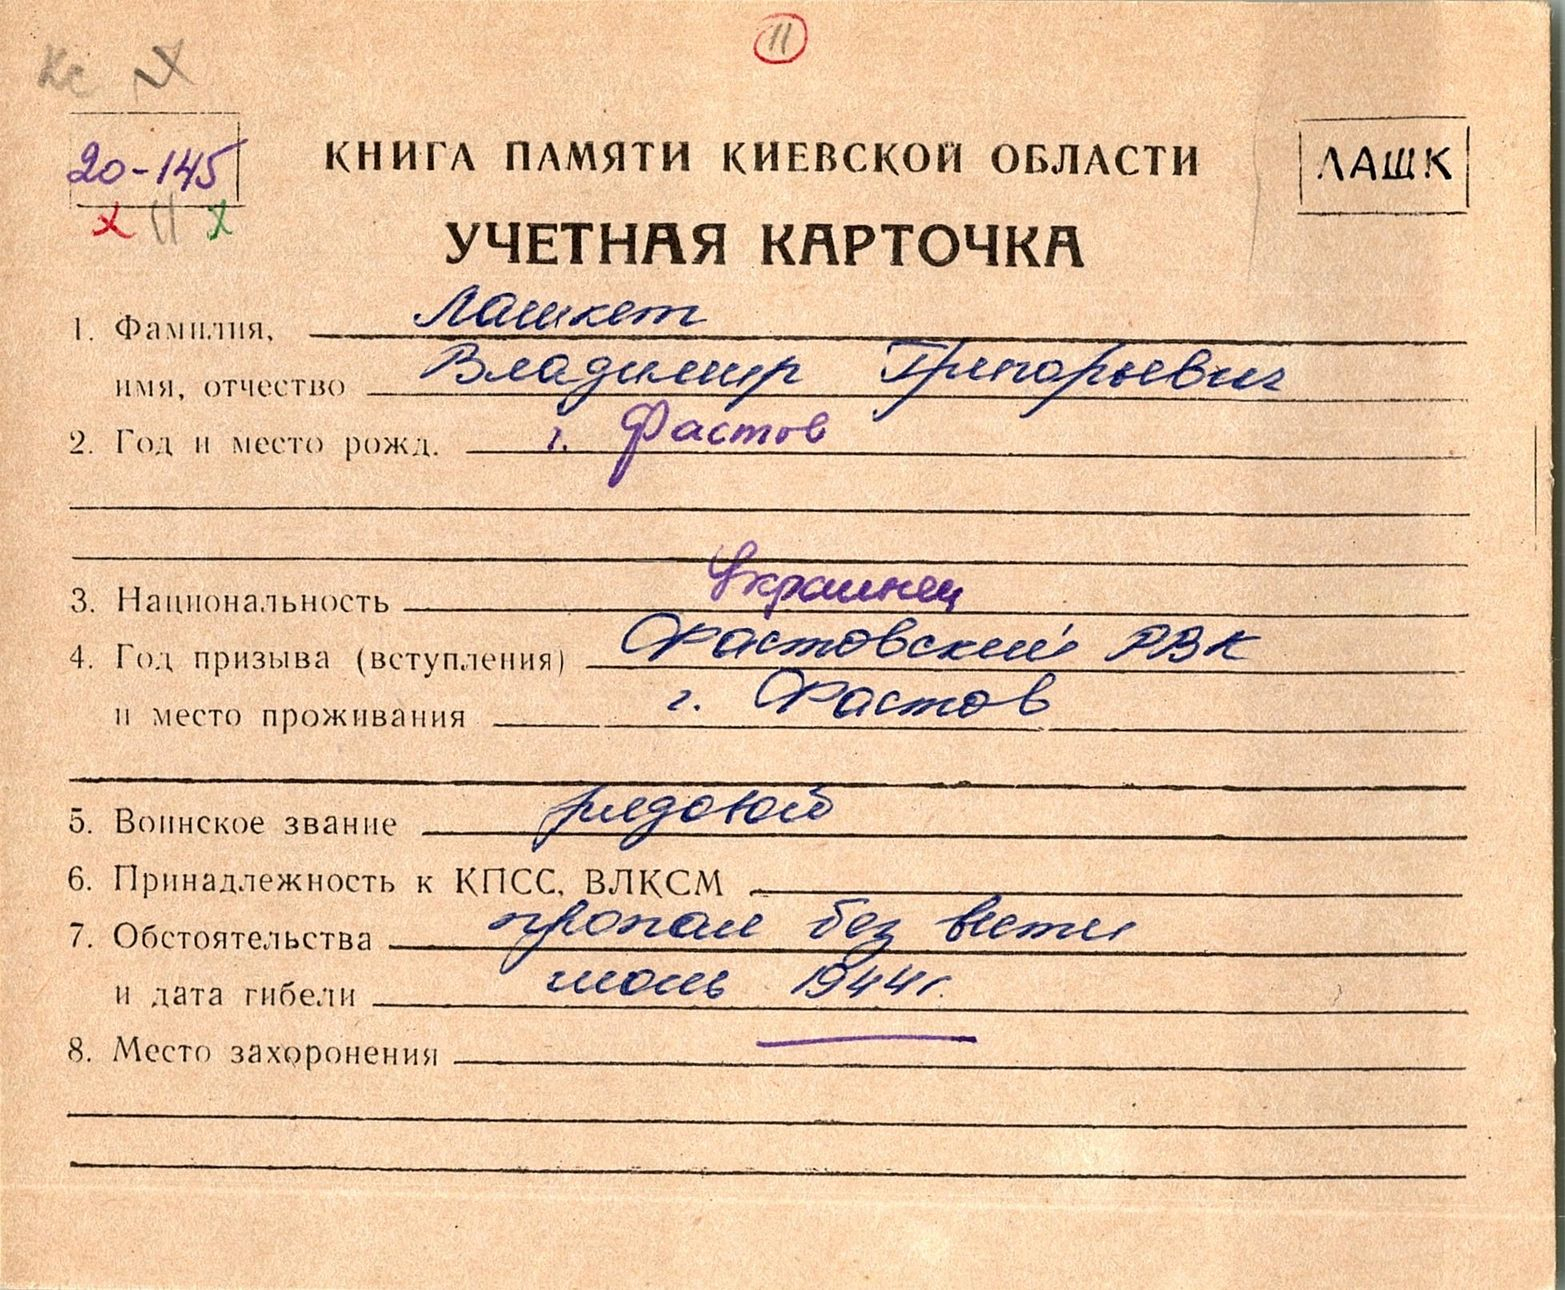 11
Кс
20-145
КНИГА ПАМЯТИ КИЕВСКОЙ ОБЛАСТИ
ЛАШК
УЧЕТНАЯ КАРТОЧКА
1. Фамилия, Лашкет
имя, отчество Владимир Григорьевич
2. Год и место рожд. г. Фастов
3. Национальность Украинец
4. Год призыва (вступления) Фастовский РВК
и место проживания г. Фастов
5. Воинское звание рядовой
6. Принадлежность к КПСС, ВЛКСМ
7. Обстоятельства пропал без вести
и дата гибели июль 1944г.
8. Место захоронения